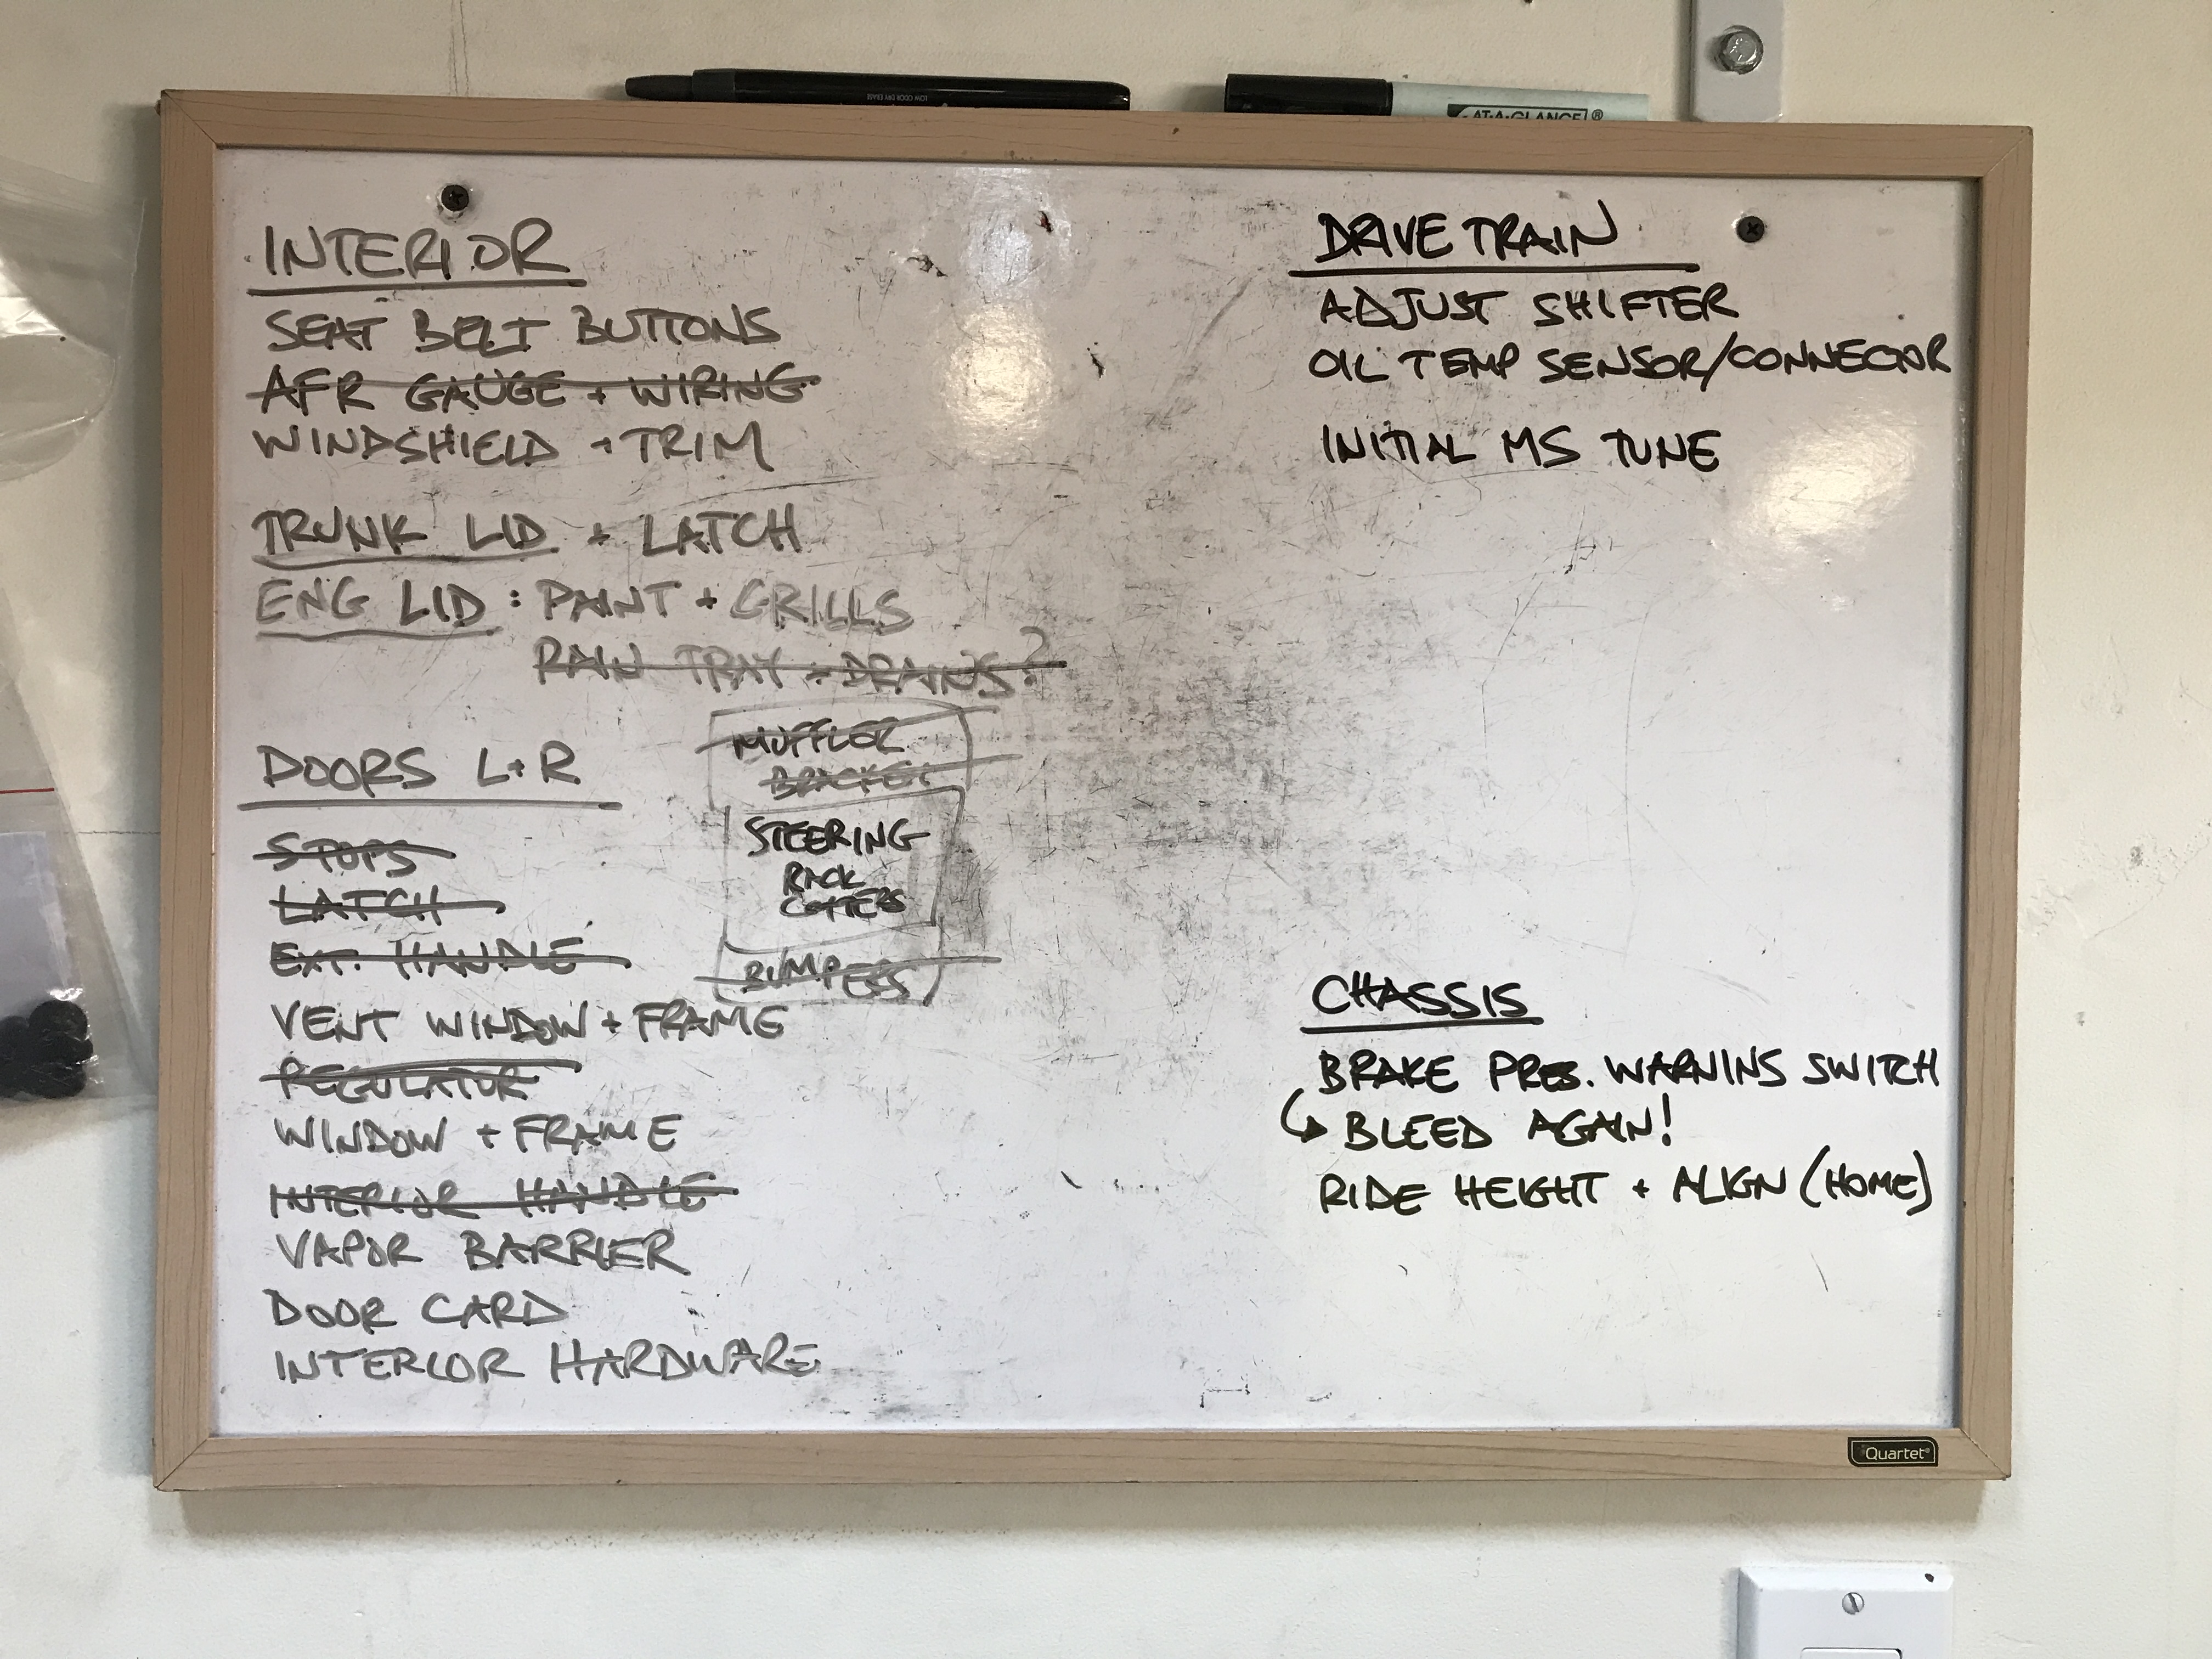 LOW ODOR DRY ERASE
AT-A-GLANCE®
INTERIOR
SEAT BELT BUTTONS
AFR GAUGE + WIRING
WINDSHIELD + TRIM
TRUNK LID + LATCH
ENG LID : PAINT + GRILLS
RAIN TRAY + DRAINS?
MUFFLER
BRACKET
STEERING
RACK
COTTERS
BUMPERS
DOORS L+R
STOPS
LATCH
EXT. HANDLE
VENT WINDOW + FRAME
REGULATOR
WINDOW + FRAME
INTERIOR HANDLE
VAPOR BARRIER
DOOR CARD
INTERIOR HARDWARE
DRIVETRAIN
ADJUST SHIFTER
OIL TEMP SENSOR/CONNECTOR
INITIAL MS TUNE
CHASSIS
BRAKE PRES. WARNING SWITCH
↳ BLEED AGAIN!
RIDE HEIGHT + ALIGN (HOME)
Quartet®